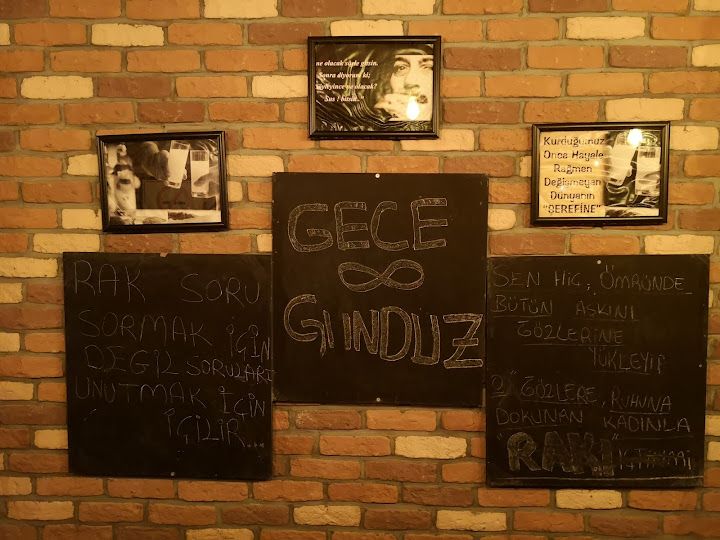 ne olacak söyle gitsin.
Sonra diyorum ki;
Söyleyince ne olacak?
Sus / bitsin.
Kurduğumuz
Onca Hayale
Rağmen
Değişmeyen
Dünyanın
"ŞEREFİNE"
RAK SORU
SORMAK İÇİN
DEĞİL SORULARI
UNUTMAK İÇİN
İÇİLİR...
GECE
∞
GUNDUZ
SEN HİÇ, ÖMRÜNDE
BÜTÜN AŞKINI
GÖZLERİNE
YÜKLEYİP
O GÖZLERE, RUHUNA
DOKUNAN KADINLA
"RAKI"